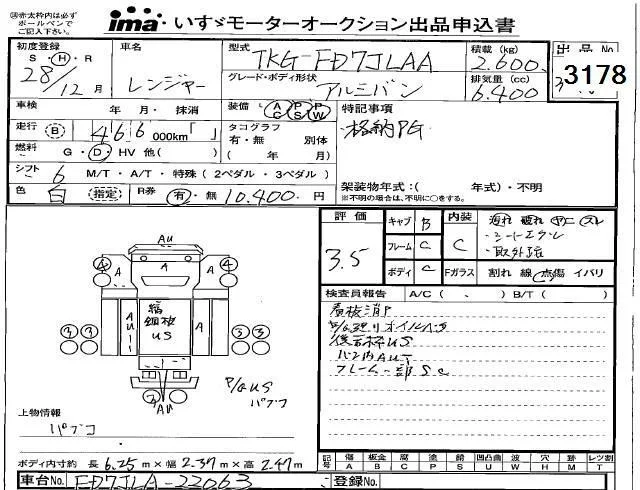 ※赤太枠内は必ず
ボールペンで
ご記入下さい。
ima・いすゞモーターオークション出品申込書
初度登録 車名 型式 TKG-FD7JLAA 積載(kg) 出品No.
S・H・R 28/12月 レンジャー 2.600 3178
グレード・ボディ形状 アルミバン 排気量(cc) 6.400
車検 年・月・抹消 装備 AC PS PW 特記事項
走行 B 466000km「 」 タコグラフ ・格納PG
有・無 別体
燃料 G・D・HV 他( ) ( 年 月)
シフト 6 M/T・A/T・特殊(2ペダル・3ペダル) 架装物年式:( 年式)・不明
※不明の場合は、不明に○をする。
色 白 指定 R券 有・無 10.400.円
評価 3.5 キャブ B 内装 C 汚れ 破れ ヤニ スレ
フレーム C
ボディ C Fガラス 割れ 線 点傷 イバリ
検査員報告 A/C( 、 ) B/T( )
看板消P
バン内AUT
フレーム一部Sc
AU
4 A A A 4
3 3 AU A 5 5
US
P/GUS
パブコ
AU
上物情報
パブコ
ボディ内寸約 長6.25m×幅2.37m×高2.47m
記号 傷A 板金B 腐C 塗P 錆S 凹凸曲U 波W 穴H 跡M レツ割T
車台No. FD7JLA-22063 登録No.